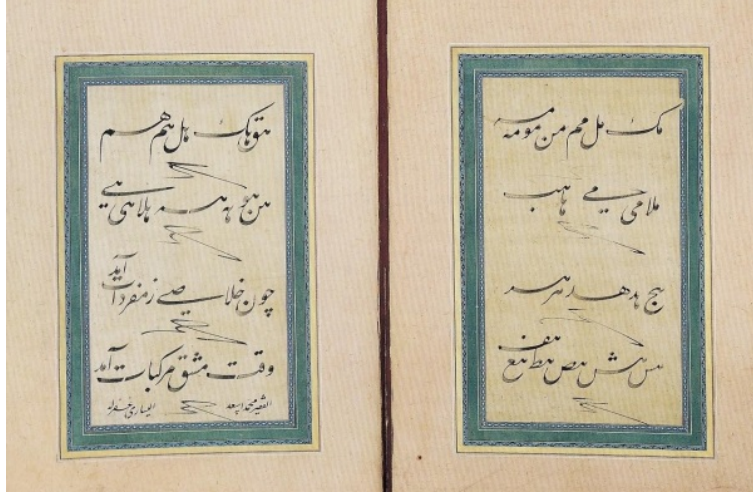 مك مل مم من مو مه مه
ملا مى مے ها هب
هج هد هر
هس هش هص هط هع هف
هق هك هل هم هم
هن هو هه هه هلا هى هے
چون خلاصے ز مفردات آمد
وقت مشق مركبات آمد
الفقير محمد اسعد اليسارى غفر له